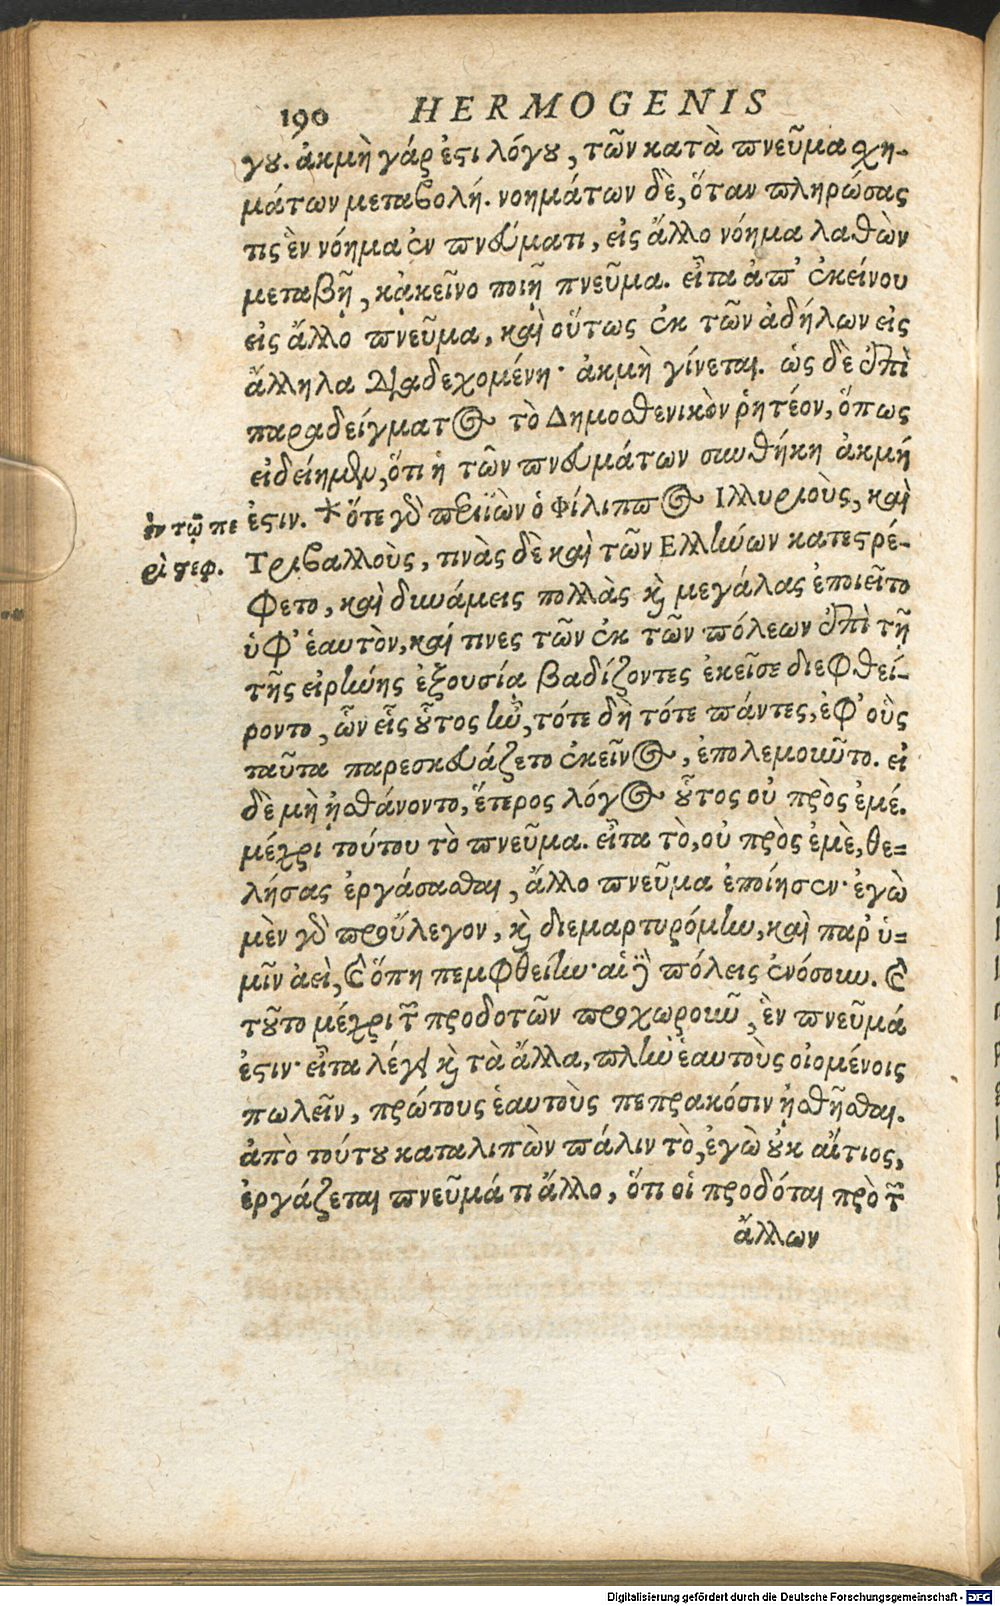 190 HERMOGENIS
γου. ἀκμὴ γάρ ἐστι λόγου, τῶν κατὰ πνεῦμα σχη-
μάτων μεταβολή. νοημάτων δὲ, ὅταν πληρώσας
τις ἓν νόημα ἐν πνεύματι, εἰς ἄλλο νόημα λαθὼν
μεταβῇ, κἀκεῖνο ποιῇ πνεῦμα. εἶτα ἀπ' ἐκείνου
εἰς ἄλλο πνεῦμα, καὶ οὕτως ἐκ τῶν ἀδήλων εἰς
ἄλληλα διαδεχομένη· ἀκμὴ γίνεται. ὡς δὲ ἐπὶ
παραδείγματος τὸ Δημοσθενικὸν ῥητέον, ὅπως
εἰδείημεν, ὅτι ἡ τῶν πνευμάτων συνθήκη ἀκμή
ἐστιν. * ὅτε γὰρ περιϊὼν ὁ Φίλιππος Ἰλλυριοὺς, καὶ
ἐν τῷ πε
ρὶ στεφ.
Τριβαλλοὺς, τινὰς δὲ καὶ τῶν Ἑλλήνων κατεστρέ-
φετο, καὶ δυνάμεις πολλὰς καὶ μεγάλας ἐποιεῖτο
ὑφ' ἑαυτὸν, καί τινες τῶν ἐκ τῶν πόλεων ἐπὶ τῇ
τῆς εἰρήνης ἐξουσίᾳ βαδίζοντες ἐκεῖσε διεφθεί-
ροντο, ὧν εἷς οὗτος ἦν, τότε δὴ τότε πάντες, ἐφ' οὓς
ταῦτα παρεσκευάζετο ἐκεῖνος, ἐπολεμοῦντο. εἰ
δὲ μὴ ᾐσθάνοντο, ἕτερος λόγος οὗτος οὐ πρὸς ἐμέ.
μέχρι τούτου τὸ πνεῦμα. εἶτα τὸ, οὐ πρὸς ἐμὲ, θε-
λήσας ἐργάσασθαι, ἄλλο πνεῦμα ἐποίησεν· ἐγὼ
μὲν γὰρ προὔλεγον, καὶ διεμαρτυρόμην, καὶ παρ' ὑ-
μῖν ἀεὶ, καὶ ὅπη πεμφθείην· αἱ δὲ πόλεις ἐνόσουν. καὶ
τοῦτο μέχρι τῶν προδοτῶν προχωροῦν, ἓν πνεῦμά
ἐστιν· εἶτα λέγει καὶ τὰ ἄλλα, πλὴν ἑαυτοὺς οἰομένοις
πωλεῖν, πρώτους ἑαυτοὺς πεπρακόσιν ᾐσθῆσθαι.
ἀπὸ τούτου καταλιπὼν πάλιν τὸ, ἐγὼ οὐκ αἴτιος,
ἐργάζεται πνεῦμά τι ἄλλο, ὅτι οἱ προδόται πρὸ τῶν
ἄλλων
Digitalisierung gefördert durch die Deutsche Forschungsgemeinschaft - DFG